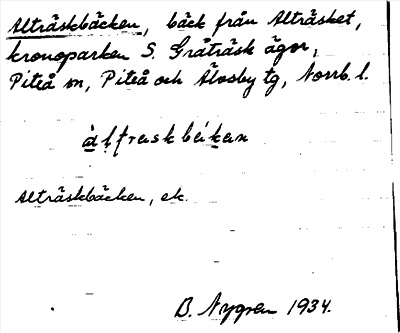 Alträskbäcken, bäck från Alträsket,
kronoparken S. Gråträsk ägor,
Piteå sn, Piteå och Älvsby tg, Norrb. l.
Alträskbäcken, ek.
B. Nygren 1934.